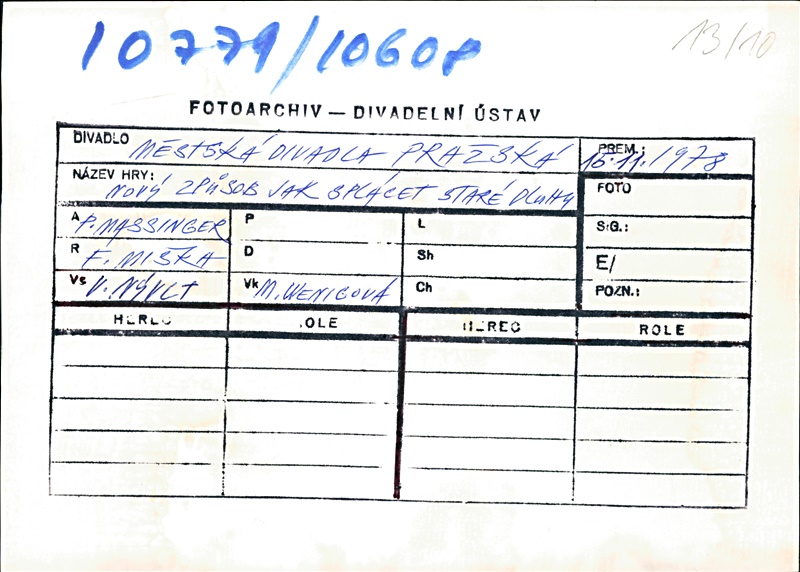 10779/10608
13/10
FOTOARCHIV — DIVADELNÍ ÚSTAV
DIVADLO MĚSTSKÁ DIVADLA PRAŽSKÁ
PREM.: 15.11.1978
NÁZEV HRY: NOVÝ ZPŮSOB JAK SPLÁCET STARÉ DLUHY
FOTO
A P. MASSINGER P L
SIG.:
R F. MIŠKA D Sh
E/
Vs V. NÝVLT Vk M. WENIGOVÁ Ch
POZN.:
HEREC ROLE HEREC ROLE